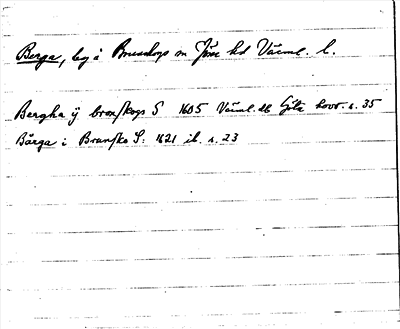 Berga, by i Brunskogs sn Jösse hd Värml. l.
Bergha ÿ bronskogs S 1605 Värml. db Göta hovr. s. 35
Bärga i Brunsko S: 1621 ib. s. 23